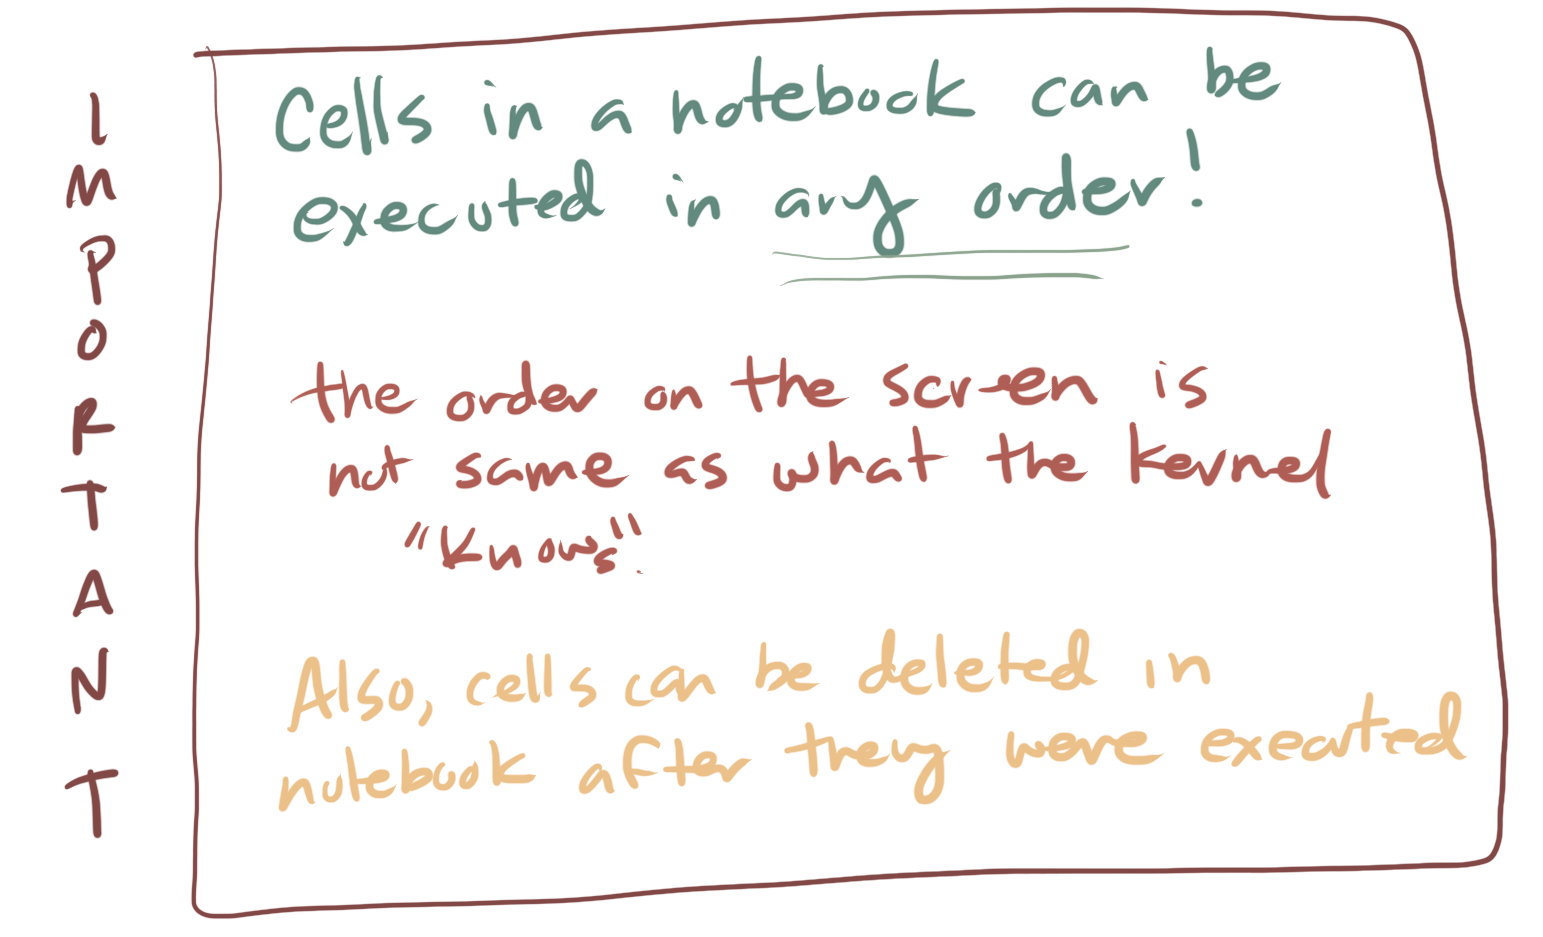 IMPORTANT
Cells in a notebook can be
executed in any order!
the order on the screen is
not same as what the kernel
"knows".
Also, cells can be deleted in
notebook after they were executed